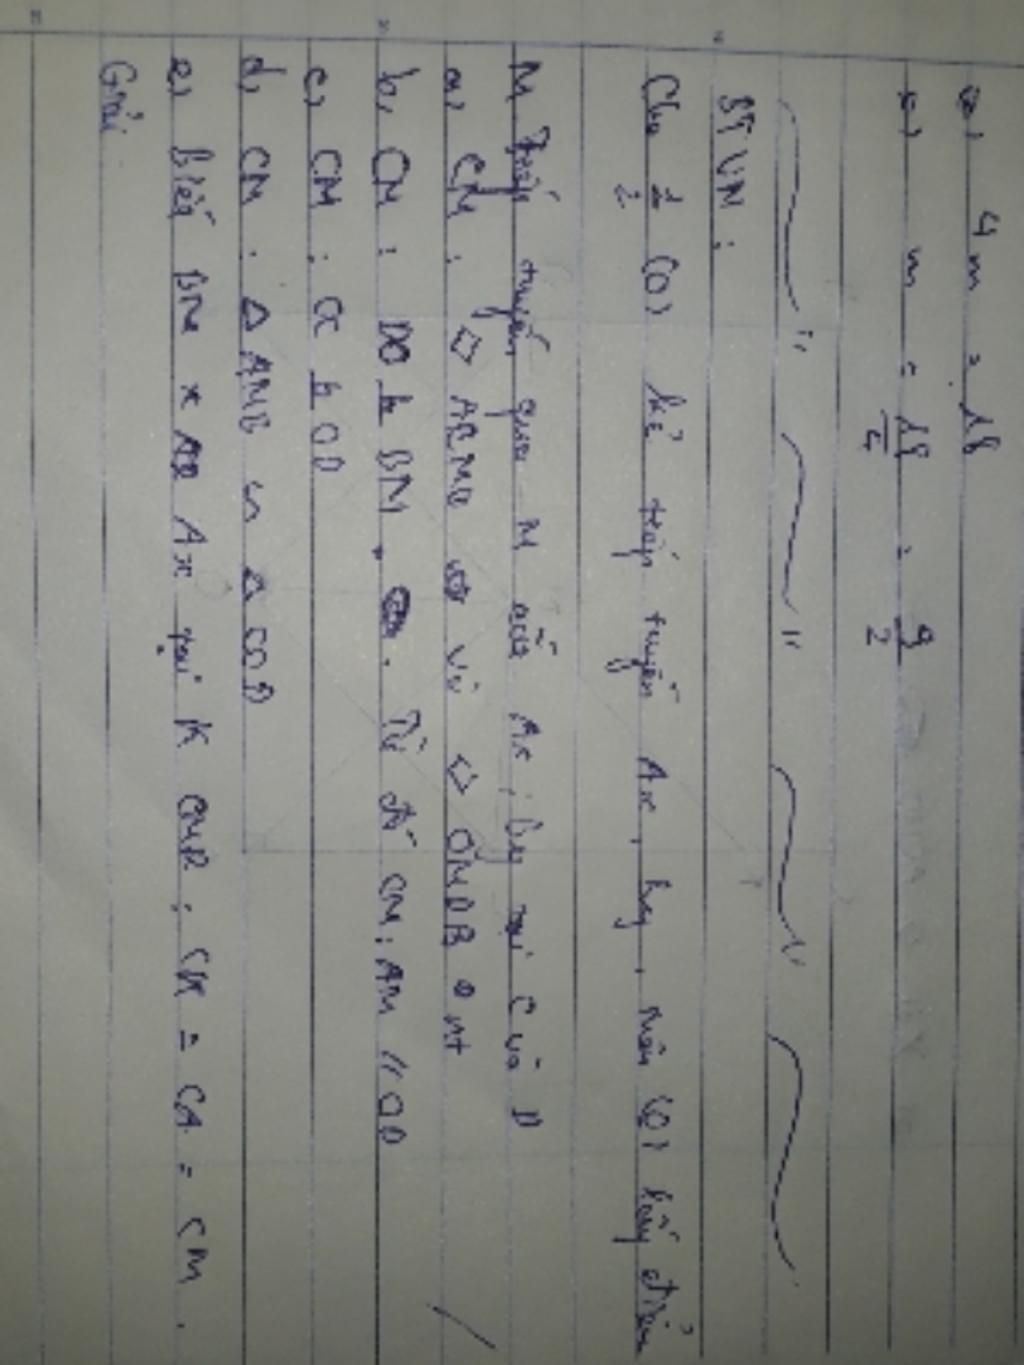 ⇔ 4m = 18
⇔ m = 18/4 = 9/2
BTVN :
Cho 1/2 (O) kẻ tiếp tuyến Ax, By, trên (O) lấy điểm
M tiếp tuyến qua M cắt Ax, By tại C và D
a, CM : ◇ ACMO và ◇ OMDB nt
b, CM : DO ⊥ BM . Từ đó CM : AM // OD
c, CM : OC ⊥ OD
d, CM : Δ AMB ∽ Δ COD
e, Biết BM x Ax tại K CMR : CK = CA = CM .
Giải